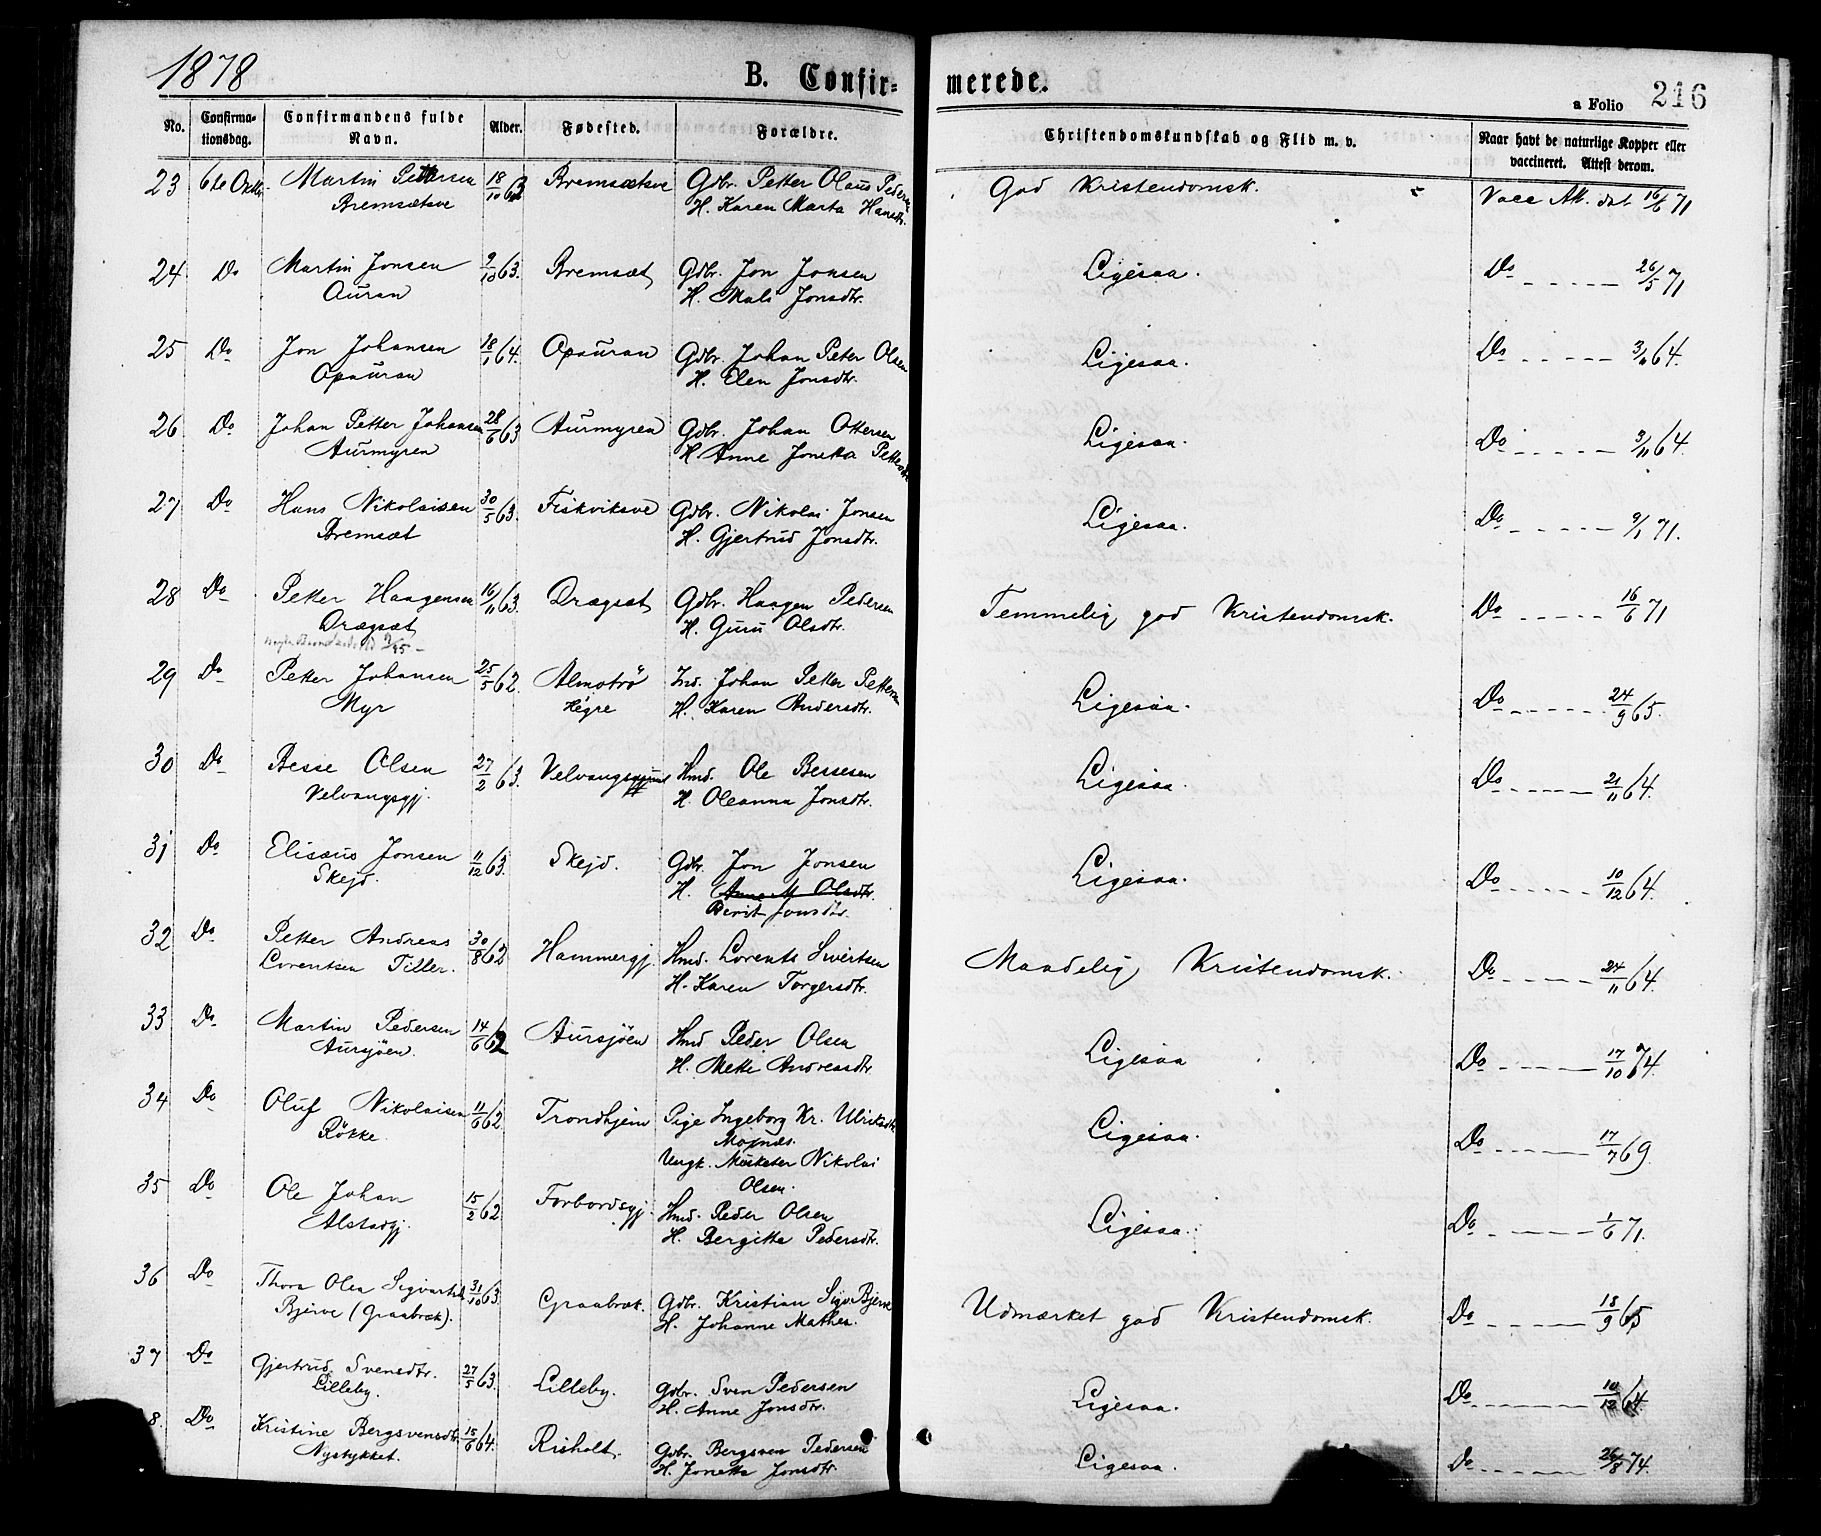 1878
B. Confir- merede.
a Folio 216
No. Confirma-tionsdag. Confirmandens fulde Navn. Alder. Fødested. Forældre. Christendomskundskab og Flid m. v. Naar havt de naturlige Kopper eller vaccineret. Attest derom.
23 6te Oktbr. Martin Pettersen 18/10 63 Bremsætsve Gdbr. Petter Olaus Pedersen God Kristendomsk. Vacc. Att. dat. 16/6 71
Bremsætsve H. Karen Marta Hansdtr.
24 Do Martin Jonsen 9/10 63. Bremsæt Gdbr. Jon Jonsen Ligesaa. Do 26/5 71
Auran H. Mali Jonsdtr.
25 Do Jon Johansen 18/1 64. Opauran Gdbr. Johan Peter Olsen Ligesaa. Do 3/11 64.
Opauran H. Elen Jonsdtr.
26 Do Johan Petter Johansen 28/6 63 Aurmyren Gdbr. Johan Ottersen Ligesaa. Do 3/11 64.
Aurmyren H. Anne Jonetta Pettersdtr.
27 Do Hans Nikolaisen 30/5 63. Fiskviksve Gdbr. Nikolai Jonsen Ligesaa. Do 9/1 71.
Bremsæt H. Gjertrud Jonsdtr.
28 Do Petter Haagensen 16/11 63. Drægsæt Gdbr. Haagen Pedersen Temmelig god Kristendomsk. Do 16/6 71
Drægsæt H. Guru Olsdtr.
29 Do Petter Johansen 25/5 62. Almotrö Ind. Johan Petter Pettersen Ligesaa. Do 24/9 65.
Myr Hegre H. Karen Andersdtr.
30 Do Besse Olsen 27/2 63. Velvangsgjerd Hmd. Ole Bessesen Ligesaa. Do 21/11 64.
Velvangsgj. H. Oleanna Jonsdtr.
31 Do Elisæus Jonsen 11/12 63. Skejd. Gdbr. Jon Jonsen Ligesaa. Do 10/12 64.
Skejd. H. Anne M Olsdtr.
Berit Jonsdtr.
32 Do Petter Andreas 30/8 62 Hammergj. Hmd. Lorents Sivertsen Maadelig Kristendomsk. Do 24/11 64.
Lorentsen Tiller. H. Karen Torgersdtr.
33 Do Martin Pedersen 14/6 62 Aursjöen Hmd Peder Olsen Ligesaa Do 17/10 74.
Aursjöen. H. Mette Andreasdtr.
34 Do Oluf Nikolaisen 11/6 62. Trondhjem Pige Ingeborg Kr. Ulriksdtr. Ligesaa. Do 17/7 69.
Rökke. Mojnæs.
Ungk. Musketer Nikolai
Olsen.
35 Do Ole Johan 15/2 62. Forbordsgj. Hmd. Peder Olsen Ligesaa. Do 1/6 71.
Alstadgj. H. Bergitte Pedersdtr.
36 Do Thora Olea Sigvartsd. 31/10 63. Graabræk. Gdbr. Kristian Sigv. Bjerve Udmærket god Kristendomsk. Do 18/9 65
Bjerve (Graabræk). H. Johanne Mathea.
37 Do Gjertrud Svensdtr. 27/5 63. Lilleby. Gdbr. Sven Pedersen Ligesaa. Do 10/12 64.
Lilleby. H. Anne Jonsdtr.
8. Do Kristine Bergsvensdtr. 15/6 64. Risholt. Gdbr. Bergsven Pedersen Ligesaa. Do 26/8 74.
Nystykket. H. Jonetta Jonsdtr.